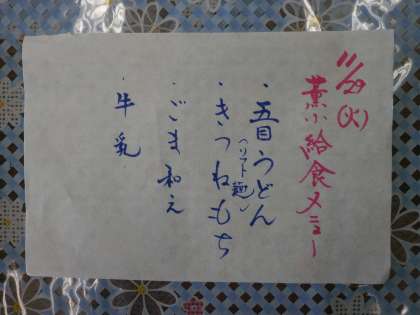 11/29(火)
薫小給食メニュー
・五目うどん
(ソフト麺)
・きつねもち
・ごま和え
・牛乳